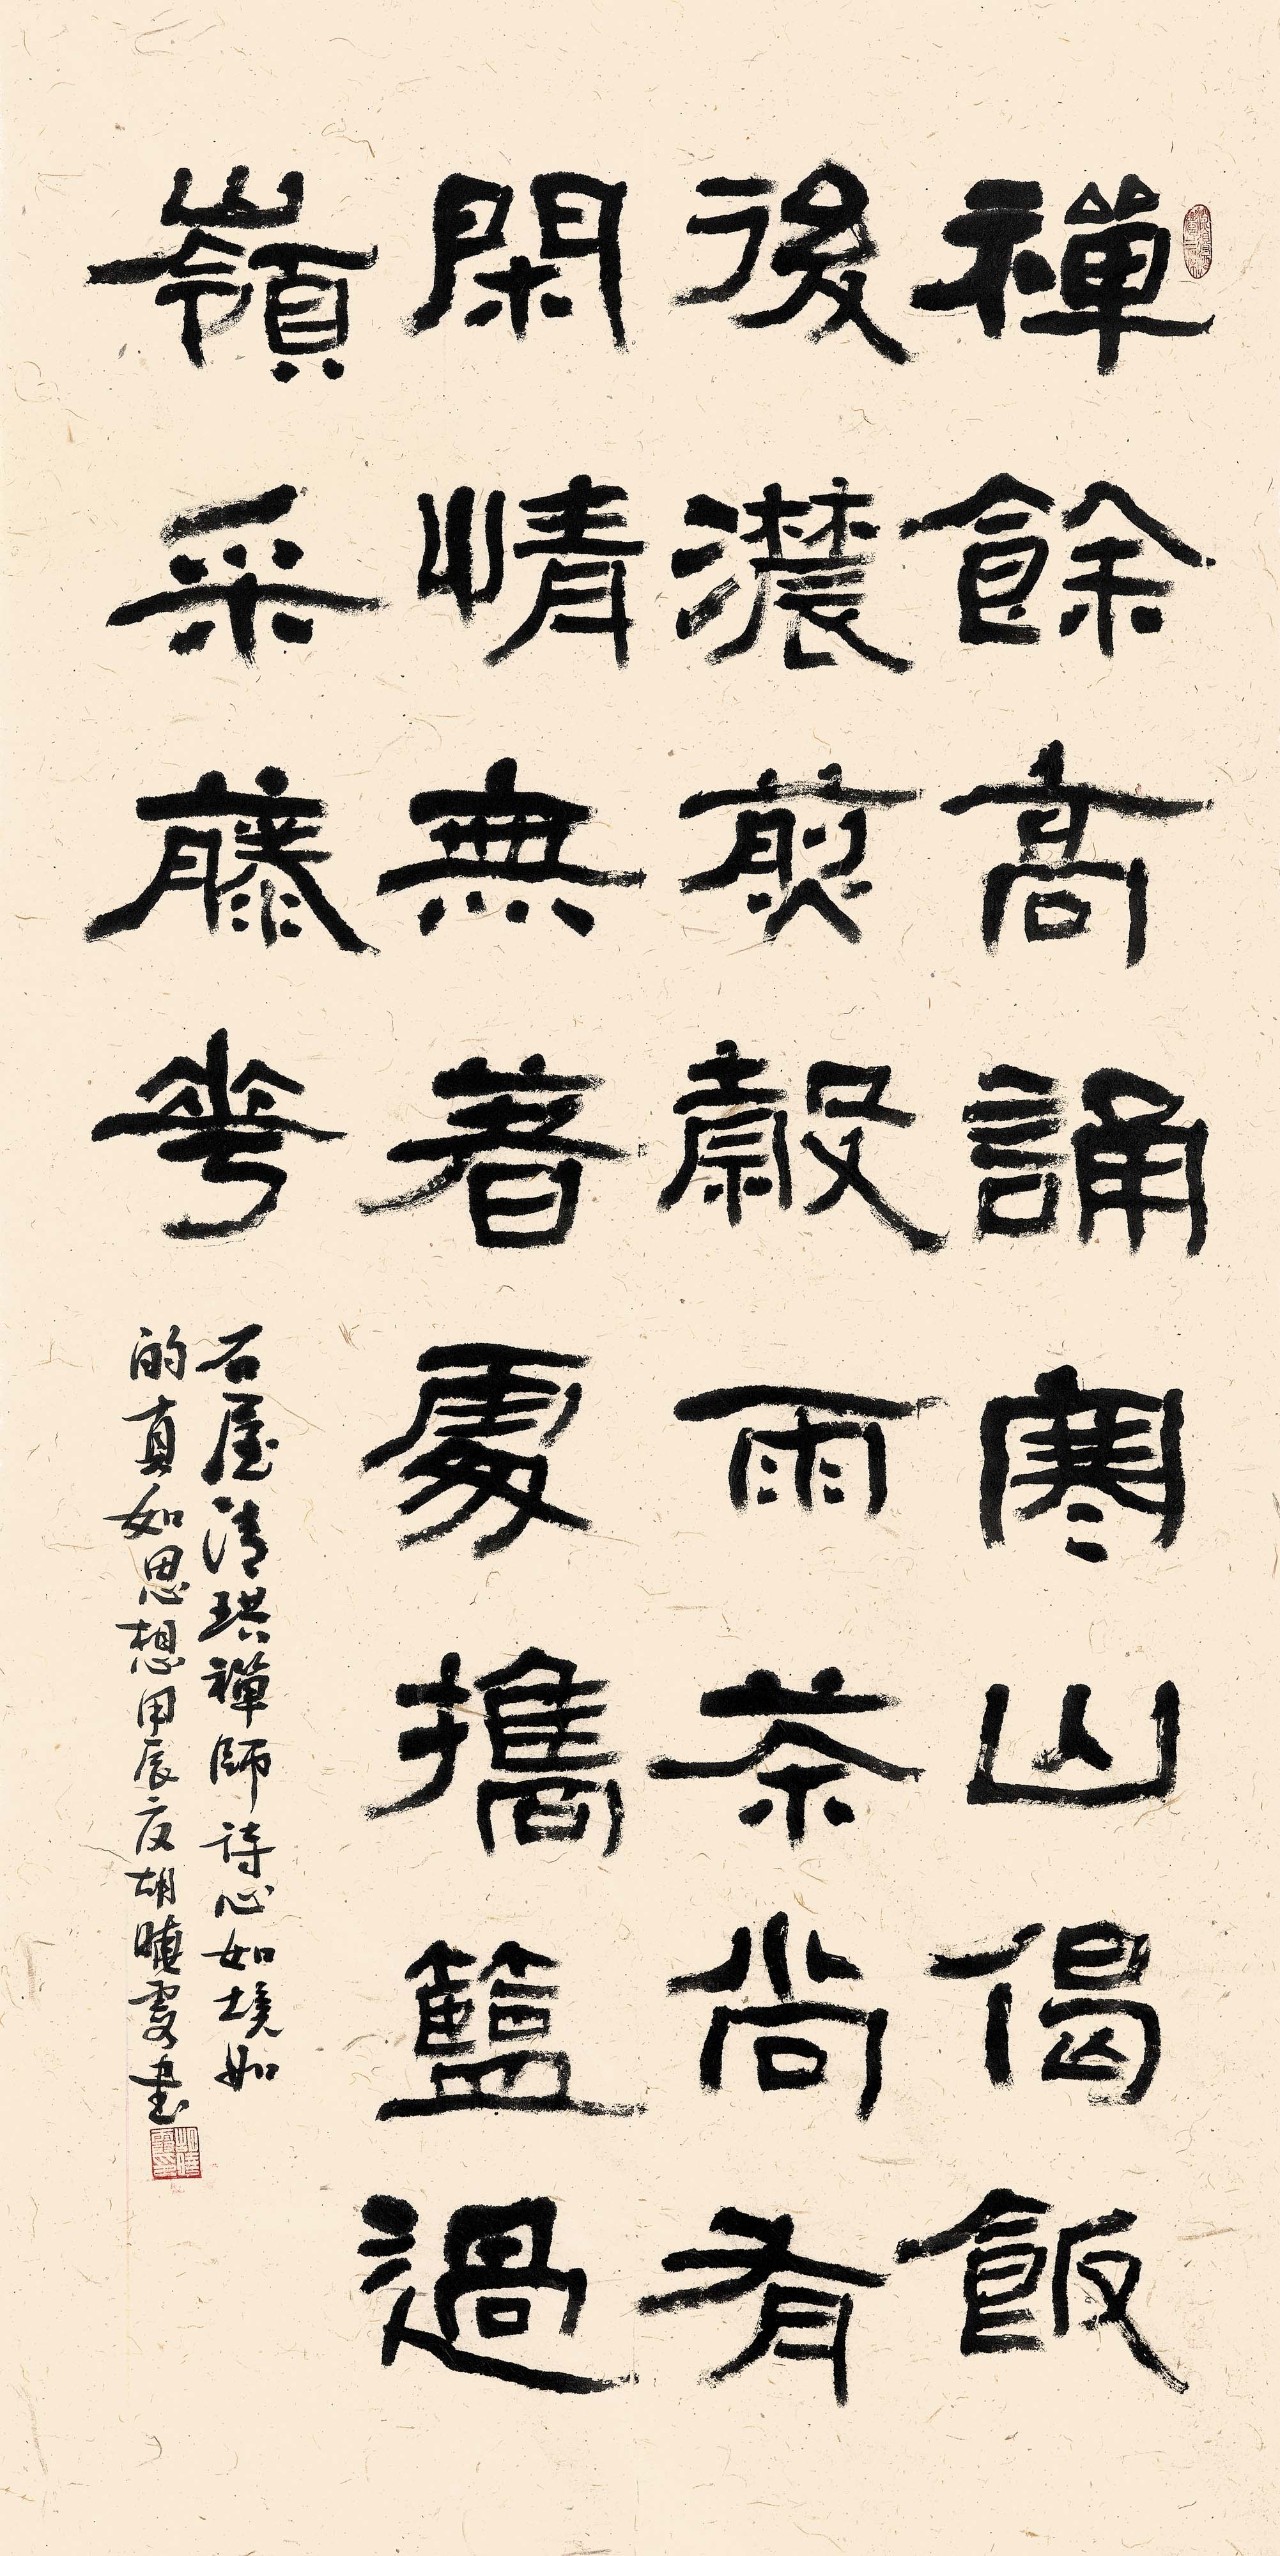 禪餘高誦寒山偈飯
後濃煎穀雨茶尚有
閑情無著處攜籃過
嶺采藤花
石屋清珙禪師詩心如境如
的真如思想甲辰夏胡曉霞書